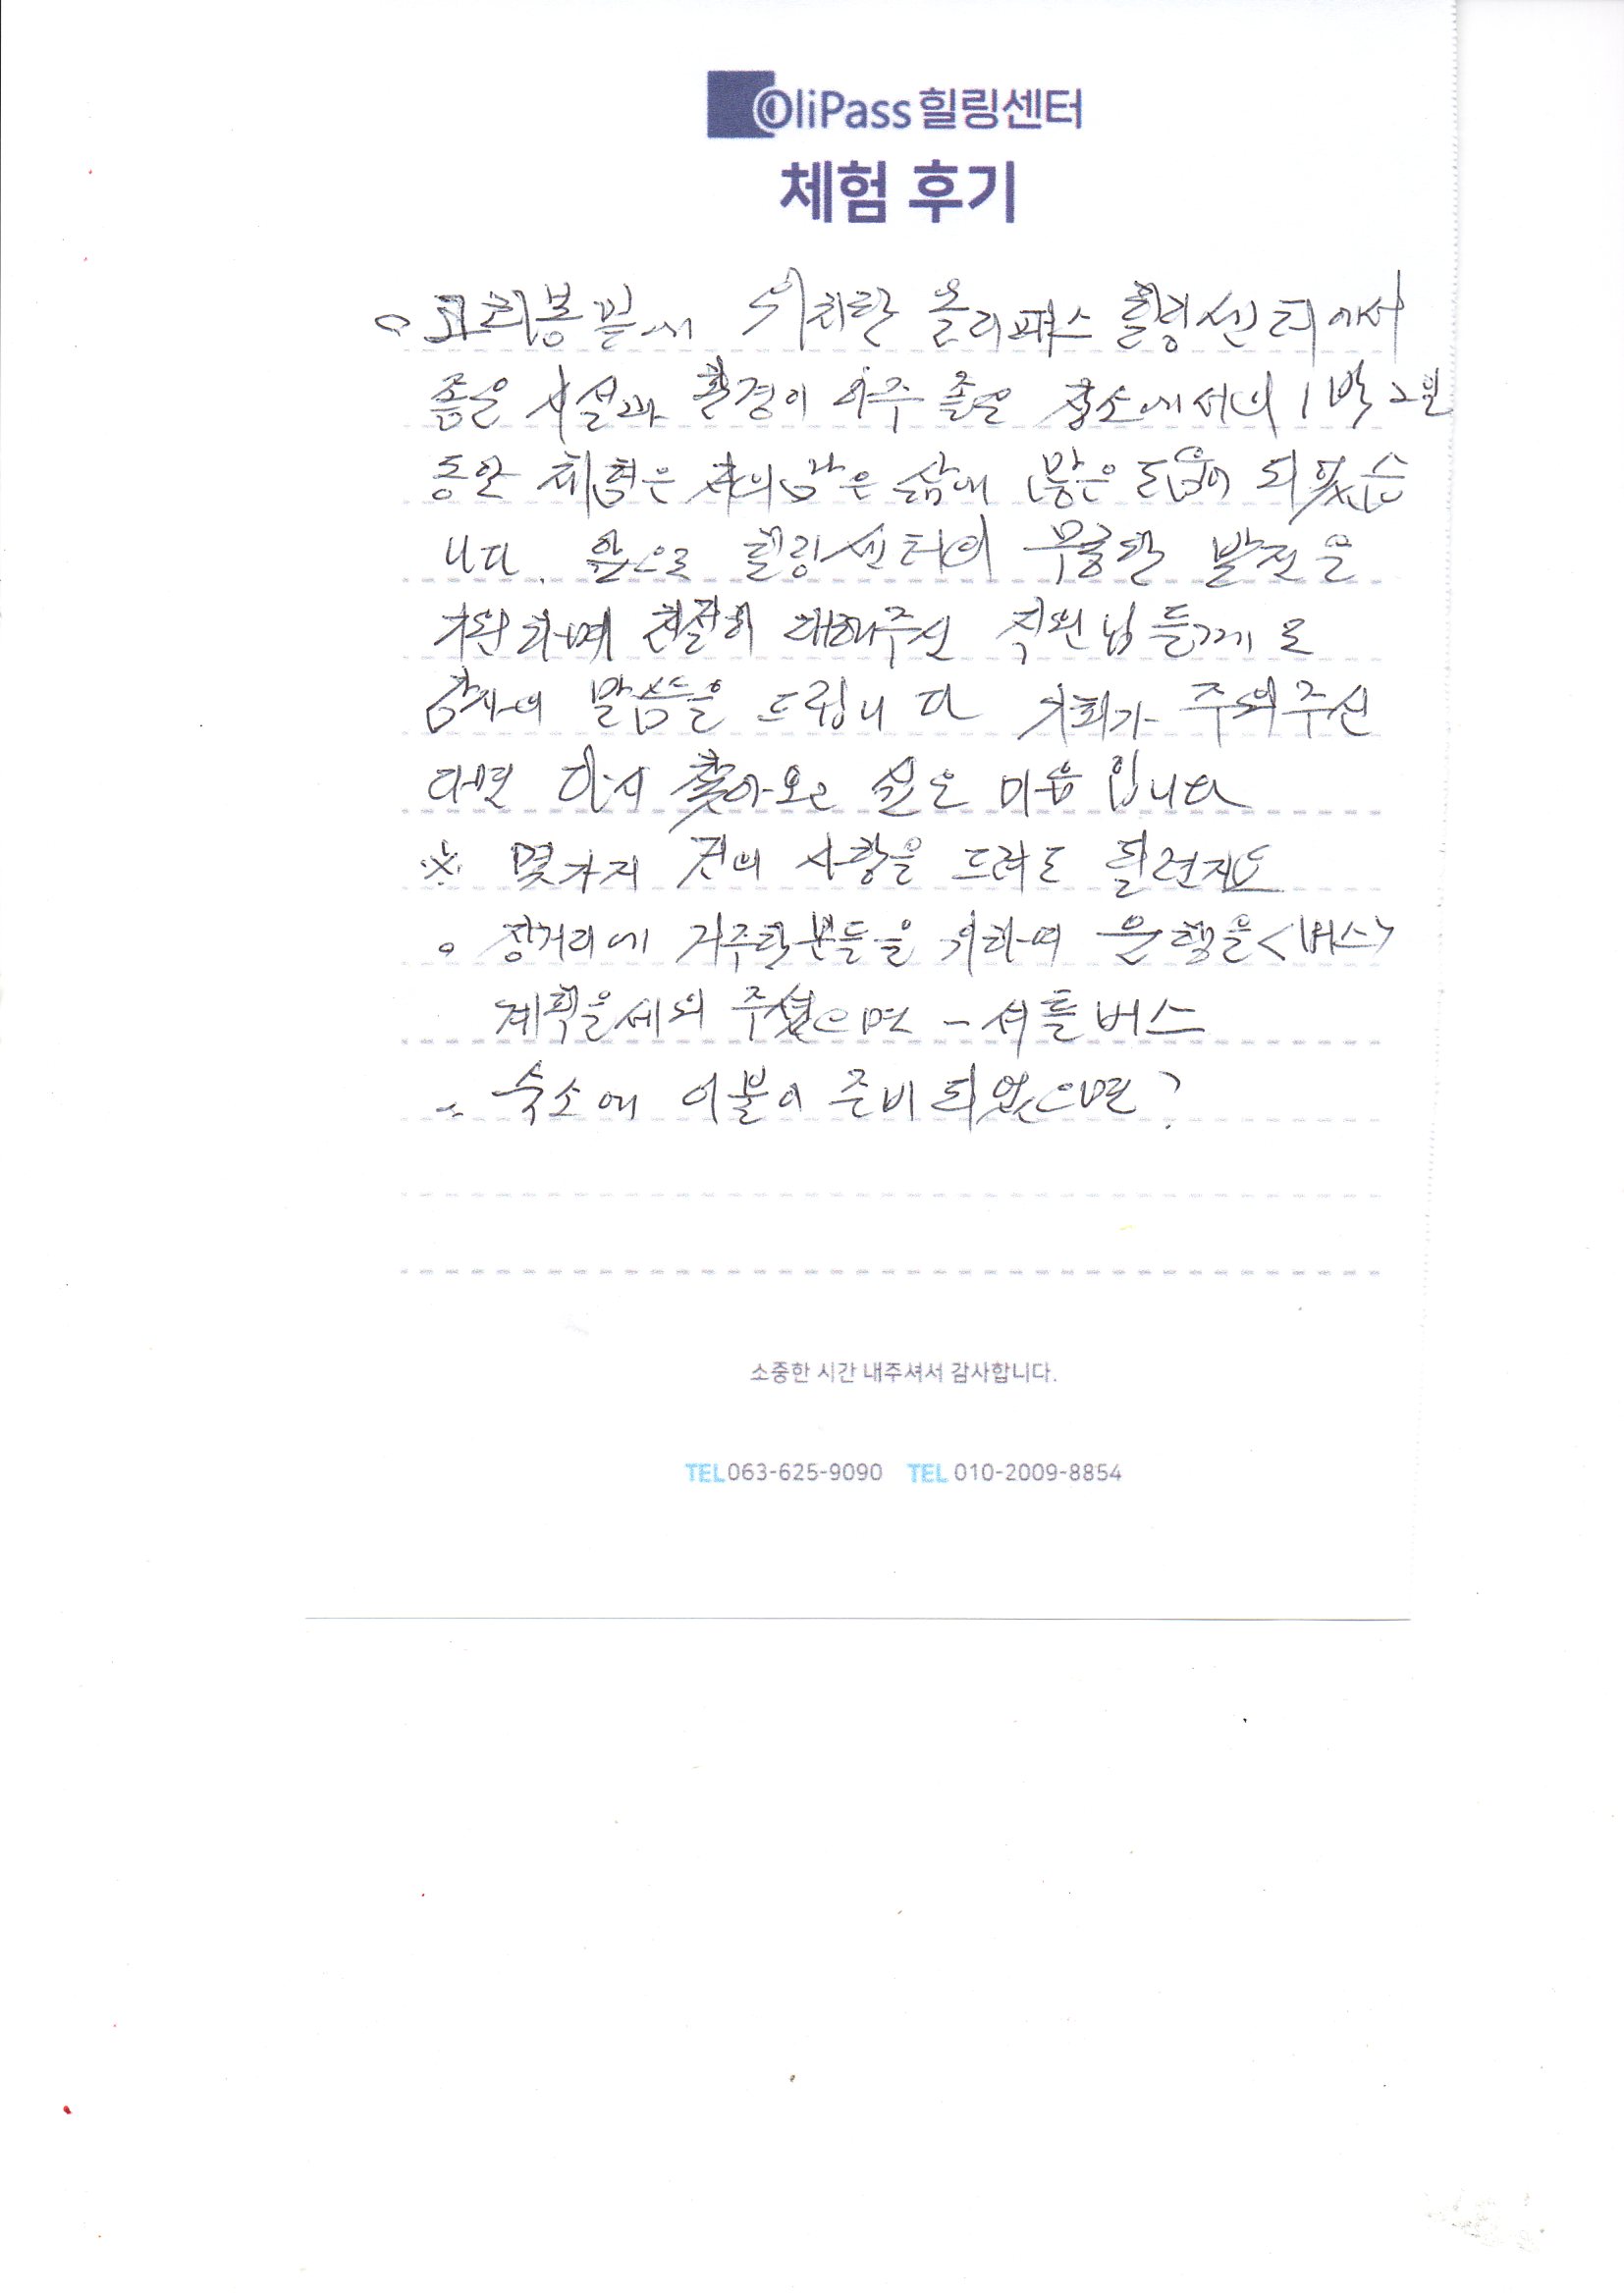 OliPass 힐링센터
체험 후기
위치한 올리패스 힐링센터에서
좋은 시설과 환경이 아주 좋은 장소에서의 1박2일
동안 체험은 저의 남은 삶에 많은 도움이 되였습
니다. 앞으로 힐링센터의 무궁한 발전을
기원하며 친절히 대해주신 직원님들께도
감사의 말씀들을 드립니다 기회가 주워주신
다면 다시 찾아오고 싶은 마음입니다
※ 몇가지 건의 사항을 드려도 될련지요
○ 장거리에 거주한분들을 위하여 운행을 <버스>
계획을 세워 주셨으면 - 셔틀버스
숙소에 이불이 준비되었으면?
소중한 시간 내주셔서 감사합니다.
TEL 063-625-9090 TEL 010-2009-8854